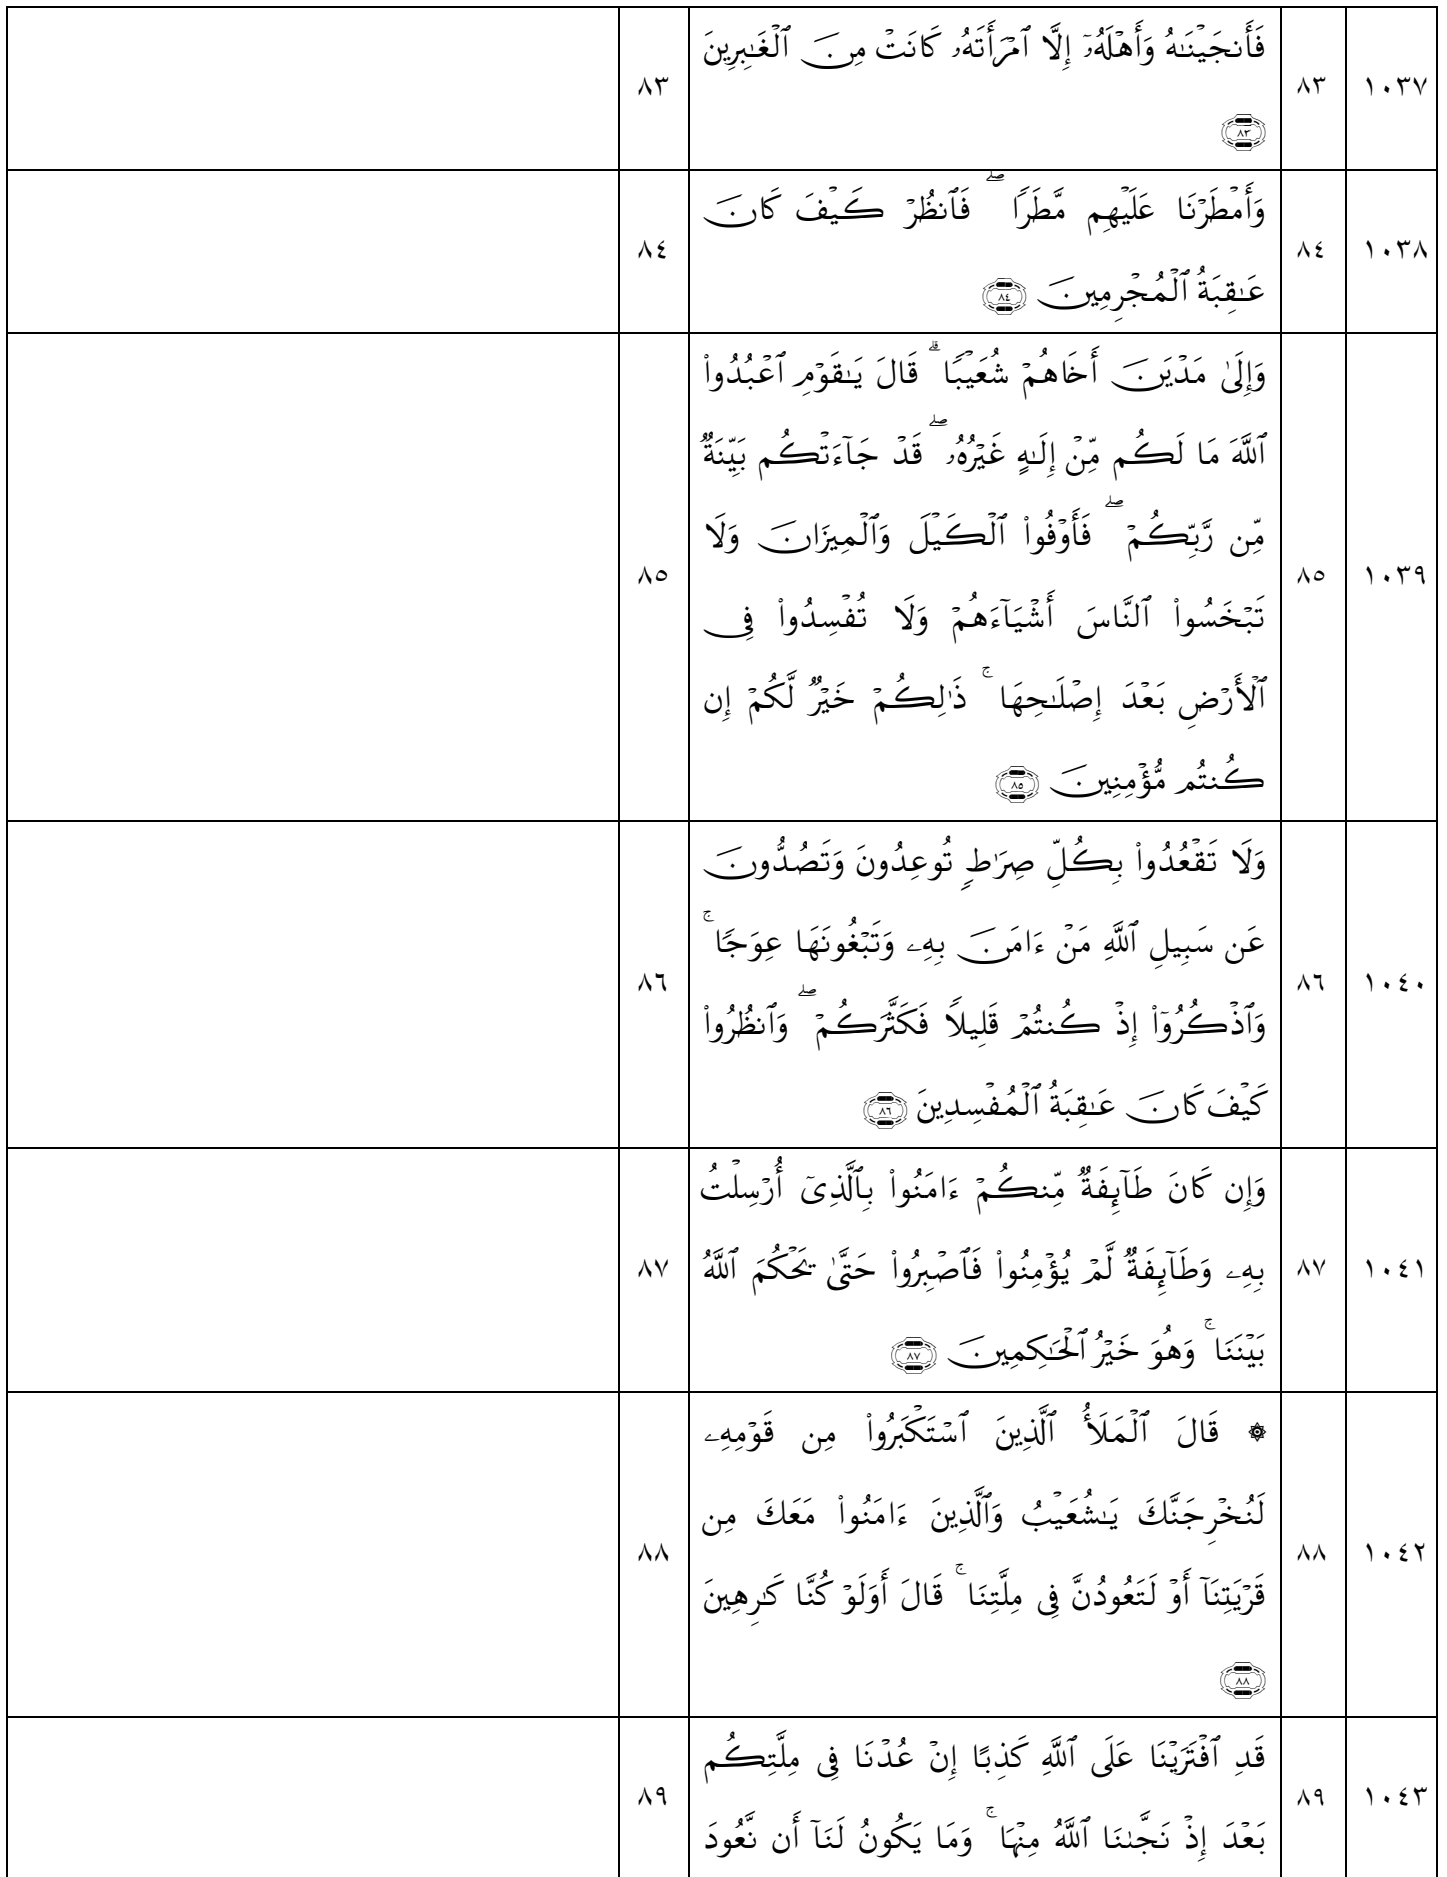 ١٠٣٧ ٨٣ فَأَنجَيۡنَـٰهُ وَأَهۡلَهُۥۤ إِلَّا ٱمۡرَأَتَهُۥ كَانَتۡ مِنَ ٱلۡغَـٰبِرِينَ ٨٣
٨٣
١٠٣٨ ٨٤ وَأَمۡطَرۡنَا عَلَيۡهِم مَّطَرࣰاۖ فَٱنظُرۡ كَيۡفَ كَانَ ٨٤
عَـٰقِبَةُ ٱلۡمُجۡرِمِينَ ٨٤
١٠٣٩ ٨٥ وَإِلَىٰ مَدۡيَنَ أَخَاهُمۡ شُعَيۡبࣰاۚ قَالَ يَـٰقَوۡمِ ٱعۡبُدُوا۟ ٨٥
ٱللَّهَ مَا لَكُم مِّنۡ إِلَـٰهٍ غَيۡرُهُۥۖ قَدۡ جَاۤءَتۡكُم بَيِّنَةࣱ
مِّن رَّبِّكُمۡۖ فَأَوۡفُوا۟ ٱلۡكَيۡلَ وَٱلۡمِيزَانَ وَلَا
تَبۡخَسُوا۟ ٱلنَّاسَ أَشۡيَاۤءَهُمۡ وَلَا تُفۡسِدُوا۟ فِی
ٱلۡأَرۡضِ بَعۡدَ إِصۡلَـٰحِهَاۚ ذَ ٰ⁠لِكُمۡ خَيۡرࣱ لَّكُمۡ إِن
كُنتُم مُّؤۡمِنِينَ ٨٥
١٠٤٠ ٨٦ وَلَا تَقۡعُدُوا۟ بِكُلِّ صِرَ ٰ⁠طࣲ تُوعِدُونَ وَتَصُدُّونَ ٨٦
عَن سَبِيلِ ٱللَّهِ مَنۡ ءَامَنَ بِهِۦ وَتَبۡغُونَهَا عِوَجࣰاۚ
وَٱذۡكُرُوۤا۟ إِذۡ كُنتُمۡ قَلِيلࣰا فَكَثَّرَكُمۡۖ وَٱنظُرُوا۟
كَيۡفَ كَانَ عَـٰقِبَةُ ٱلۡمُفۡسِدِينَ ٨٦
١٠٤١ ٨٧ وَإِن كَانَ طَاۤىِٕفَةࣱ مِّنكُمۡ ءَامَنُوا۟ بِٱلَّذِیۤ أُرۡسِلۡتُ ٨٧
بِهِۦ وَطَاۤىِٕفَةࣱ لَّمۡ يُؤۡمِنُوا۟ فَٱصۡبِرُوا۟ حَتَّىٰ يَحۡكُمَ ٱللَّهُ
بَيۡنَنَاۚ وَهُوَ خَيۡرُ ٱلۡحَـٰكِمِينَ ٨٧
١٠٤٢ ٨٨ ۞ قَالَ ٱلۡمَلَأُ ٱلَّذِينَ ٱسۡتَكۡبَرُوا۟ مِن قَوۡمِهِۦ ٨٨
لَنُخۡرِجَنَّكَ يَـٰشُعَيۡبُ وَٱلَّذِينَ ءَامَنُوا۟ مَعَكَ مِن
قَرۡيَتِنَاۤ أَوۡ لَتَعُودُنَّ فِی مِلَّتِنَاۚ قَالَ أَوَلَوۡ كُنَّا كَـٰرِهِينَ
٨٨
١٠٤٣ ٨٩ قَدِ ٱفۡتَرَيۡنَا عَلَى ٱللَّهِ كَذِبًا إِنۡ عُدۡنَا فِی مِلَّتِكُم ٨٩
بَعۡدَ إِذۡ نَجَّىٰنَا ٱللَّهُ مِنۡهَاۚ وَمَا يَكُونُ لَنَاۤ أَن نَّعُودَ